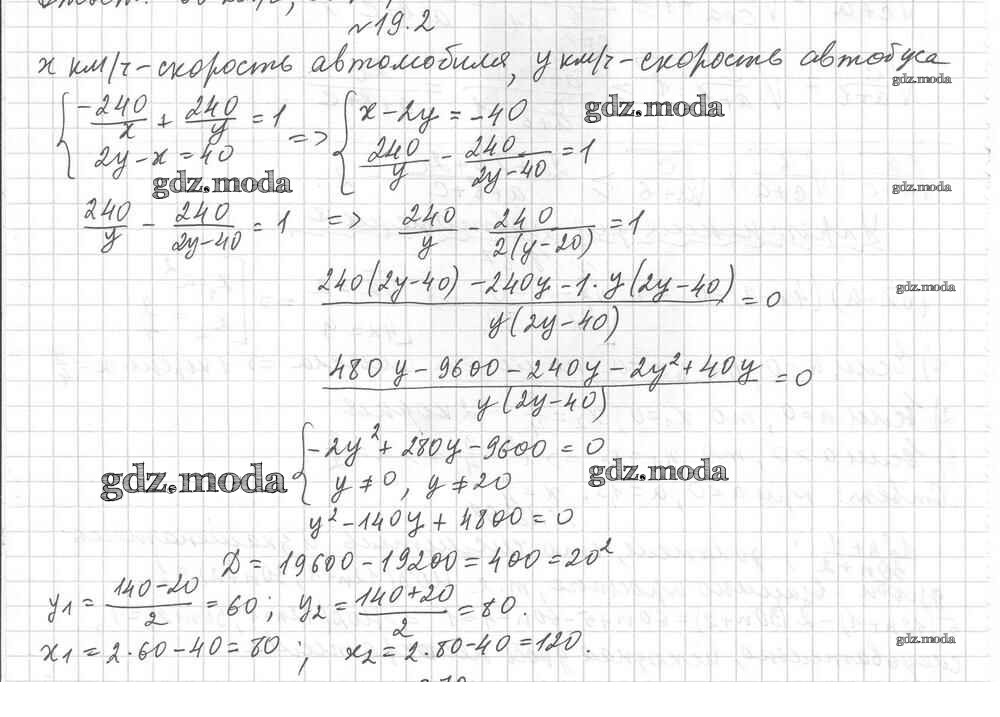 №19.2
x км/ч - скорость автомобиля, y км/ч - скорость автобуса
gdz.moda
{ -240/x + 240/y = 1 => { x - 2y = -40
2y - x = 40 240/y - 240/(2y-40) = 1
gdz.moda
gdz.moda
gdz.moda
240/y - 240/(2y-40) = 1 => 240/y - 240/(2(y-20)) = 1
(240(2y-40) - 240y - 1·y(2y-40))/(y(2y-40)) = 0
gdz.moda
(480y - 9600 - 240y - 2y² + 40y)/(y(2y-40)) = 0
{ -2y² + 280y - 9600 = 0
y ≠ 0, y ≠ 20
gdz.moda
gdz.moda
y² - 140y + 4800 = 0
D = 19600 - 19200 = 400 = 20²
y₁ = (140-20)/2 = 60; y₂ = (140+20)/2 = 80.
x₁ = 2·60 - 40 = 80; x₂ = 2·80 - 40 = 120.
gdz.moda